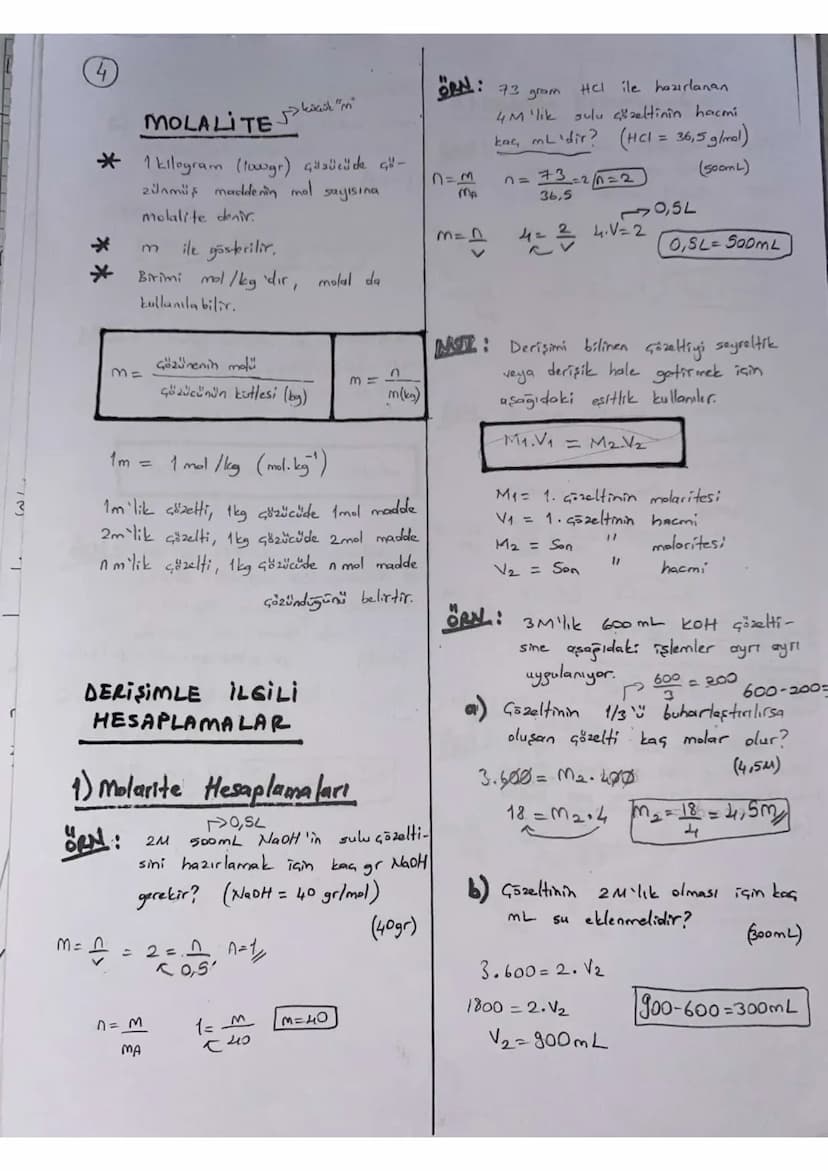 4
MOLALİTE → küçük "m"
* 1 kilogram (1000gr) çözücüde çö-
zünmüş maddenin mol sayısına
molalite denir.
* m ile gösterilir.
* Birimi mol/kg 'dır, molal da
kullanılabilir.
m = Çözünenin molü / Çözücünün kütlesi (kg)
m = n / m(kg)
1m = 1 mol/kg (mol.kg⁻¹)
1m'lik çözelti, 1kg çözücüde 1mol madde
2m'lik çözelti, 1kg çözücüde 2mol madde
n m'lik çözelti, 1kg çözücüde n mol madde
çözündüğünü belirtir.
DERİŞİMLE İLGİLİ
HESAPLAMALAR
1) Molarite Hesaplamaları
→0,5L
ÖRN: 2M 500mL NaOH'in sulu çözelti-
sini hazırlamak için kaç gr NaOH
gerekir? (NaOH = 40 gr/mol)
(40gr)
M = n/v = 2 = n/0,5 n=1
n = m/MA 1 = m/40 m=40
ÖRN: 73 gram HCl ile hazırlanan
4M'lik sulu çözeltinin hacmi
kaç mL'dir? (HCl = 36,5 g/mol)
(500mL)
n = m/MA n = 73/36,5 = 2 n=2
→0,5L
m = n/v 4 = 2/v 4.V=2 0,5L = 500mL
NOT: Derişimi bilinen çözeltiyi seyreltik
veya derişik hale getirmek için
aşağıdaki eşitlik kullanılır.
M1.V1 = M2.V2
M1 = 1. çözeltinin molaritesi
V1 = 1. çözeltinin hacmi
M2 = Son " molaritesi
V2 = Son " hacmi
ÖRN: 3M'lik 600mL KOH çözelti-
sine aşağıdaki işlemler ayrı ayrı
uygulanıyor. → 600/3 = 200
600-200=
a) Çözeltinin 1/3'ü buharlaştırılırsa
oluşan çözelti kaç molar olur?
(4,5M)
3.600 = M2.400
18 = M2.4 M2 = 18/4 = 4,5m
b) Çözeltinin 2M'lık olması için kaç
mL su eklenmelidir?
(300mL)
3.600 = 2.V2
1800 = 2.V2 900-600=300mL
V2 = 900mL